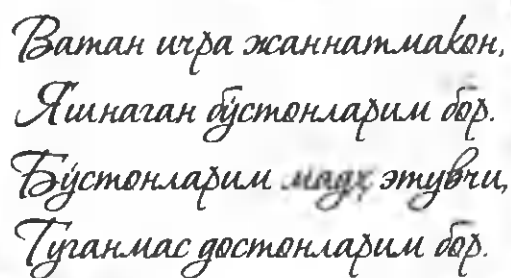 Ватан ичра жаннатмакон,
Яшнаган бўстонларим бор.
Бўстонларим мадҳ этувчи,
Туганмас достонларим бор.